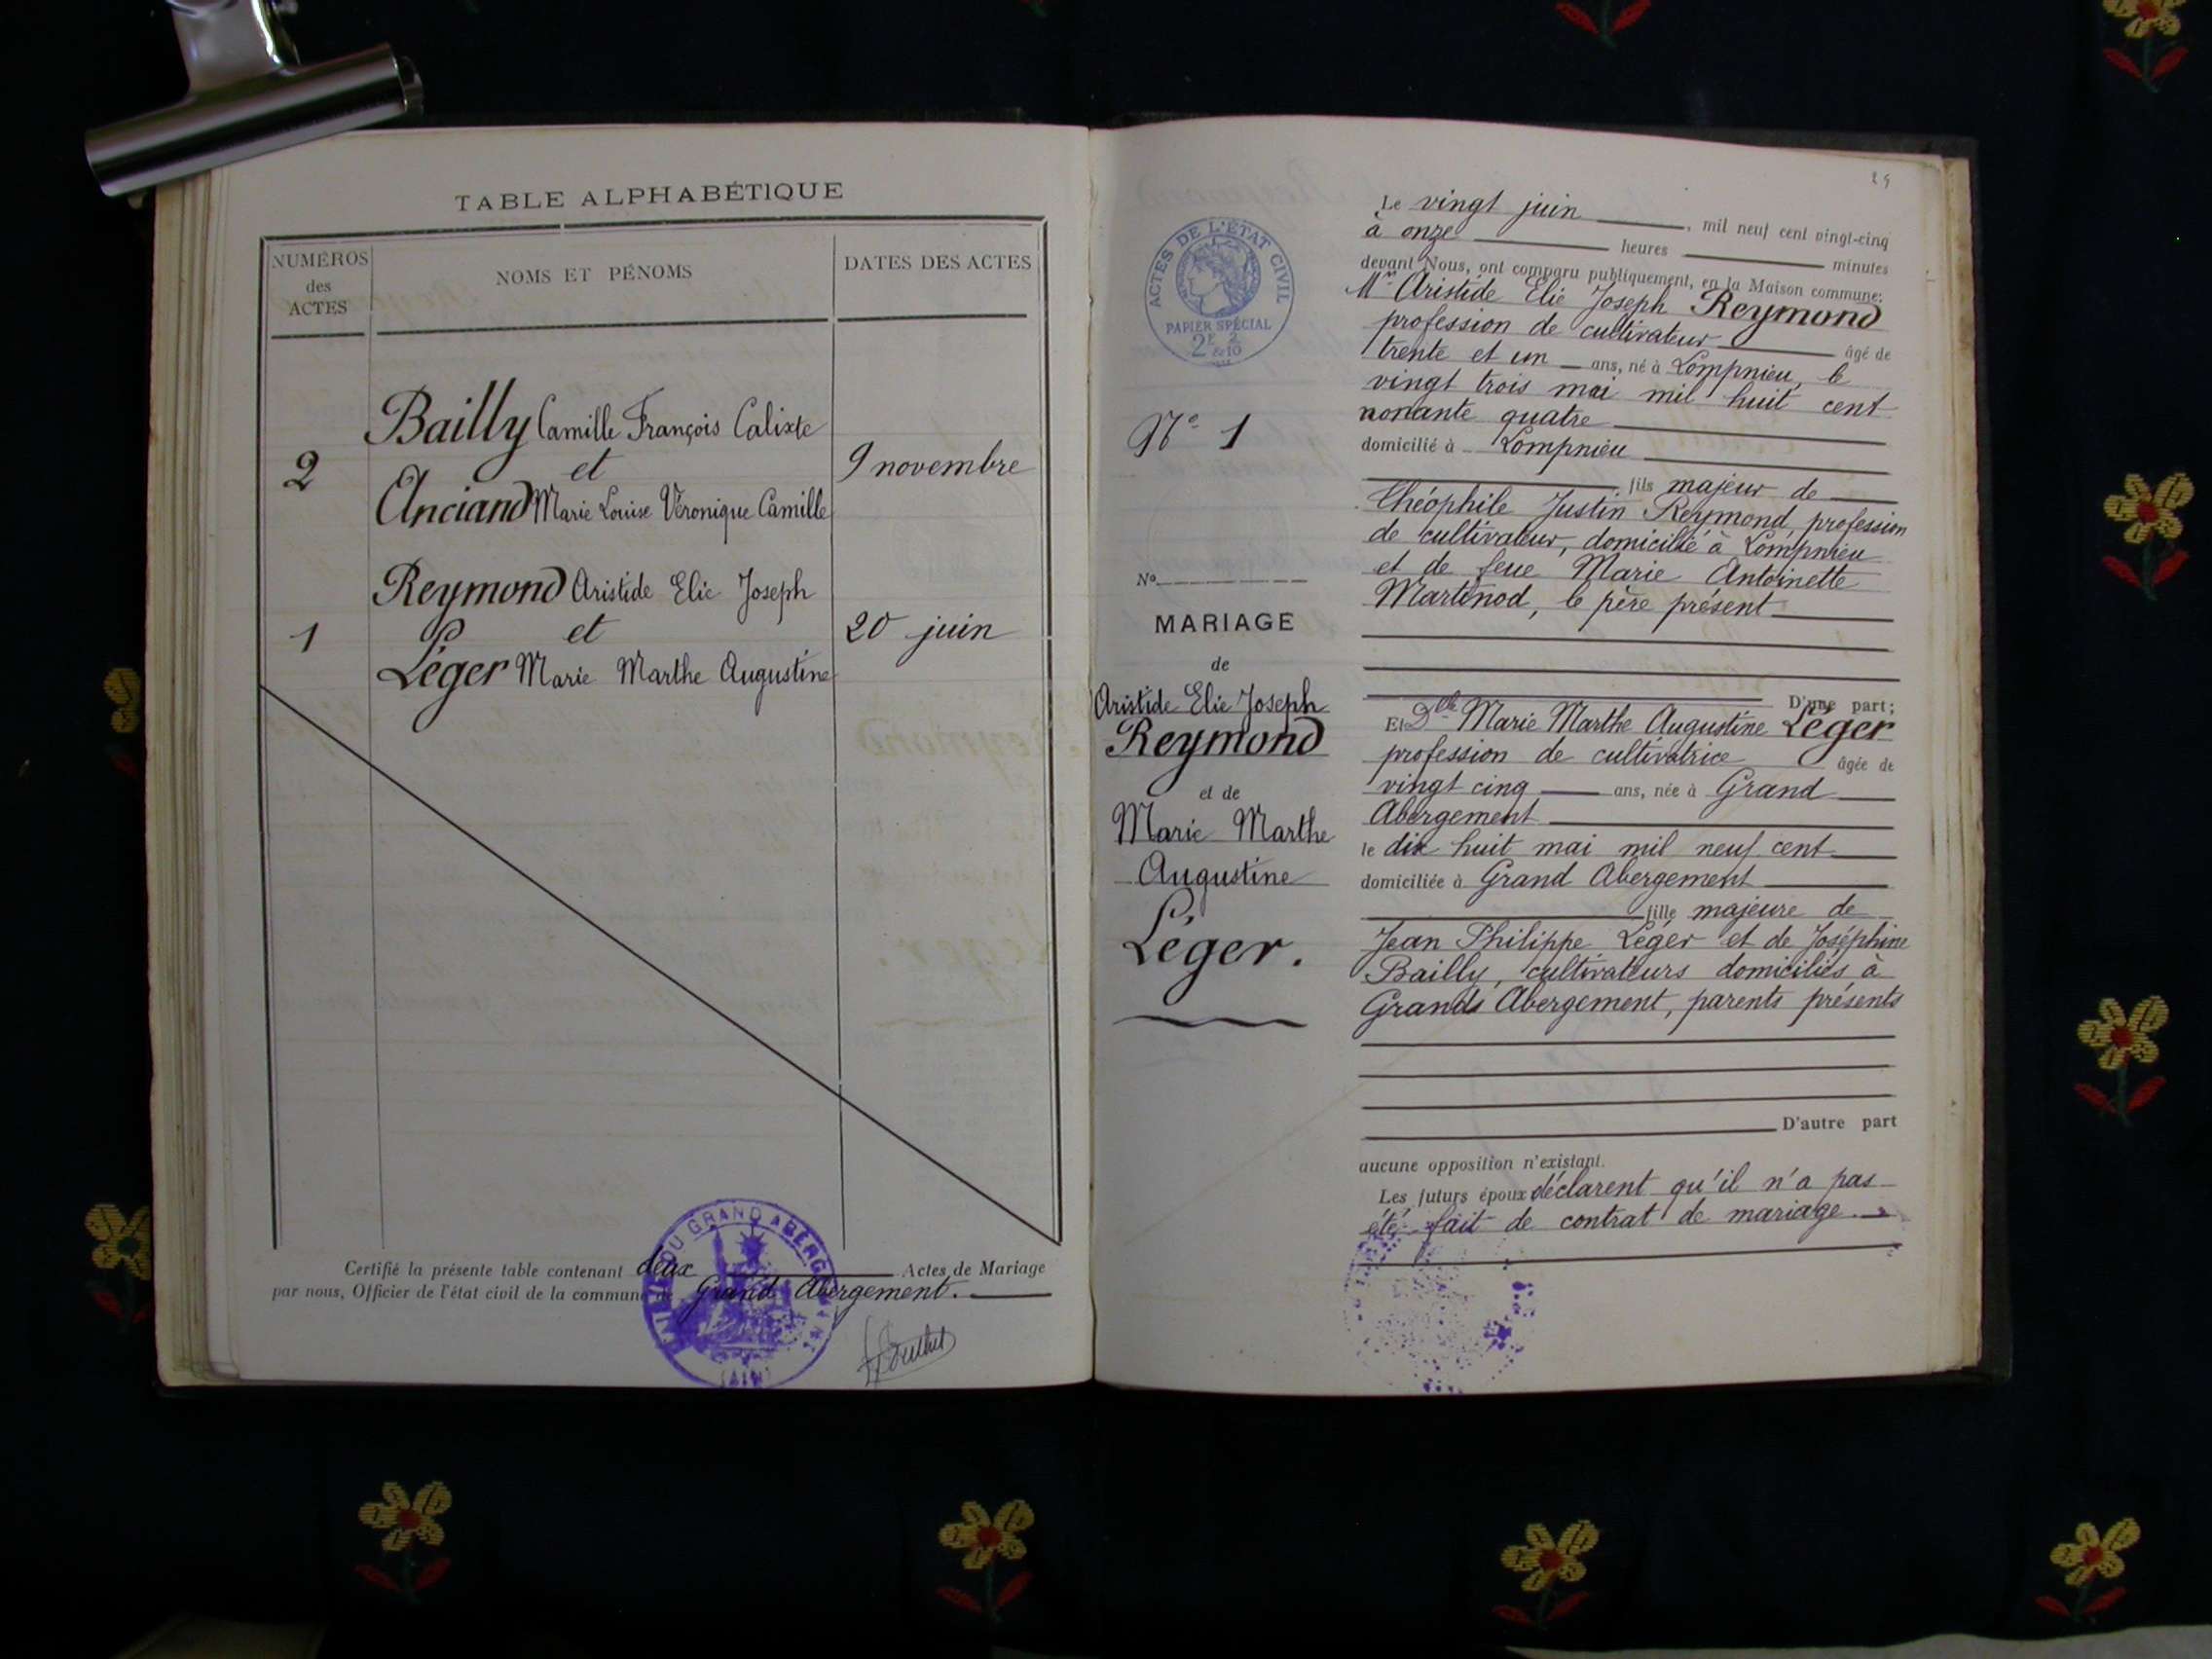 TABLE ALPHABÉTIQUE
NUMÉROS
des
ACTES
NOMS ET PÉNOMS
DATES DES ACTES
Bailly Camille François Calixte
2
et
9 novembre
Anciand Marie Louise Véronique Camille
Reymond Aristide Elie Joseph
1
et
20 juin
Léger Marie Marthe Augustine
Certifié la présente table contenant deux Actes de Mariage
par nous, Officier de l'état civil de la commune de Grand Abergement.
MAIRIE DU GRAND ABERGEMENT
(AIN)
ACTES DE L'ÉTAT CIVIL
PAPIER SPÉCIAL
2F 2
&10
No 1
No
MARIAGE
de
Aristide Elie Joseph
Reymond
et de
Marie Marthe
Augustine
Léger.
25
Le vingt juin, mil neuf cent vingt-cinq
à onze heures minutes
devant Nous, ont comparu publiquement, en la Maison commune:
Mr Aristide Elie Joseph Reymond
profession de cultivateur âgé de
trente et un ans, né à Lompnieu, le
vingt trois mai mil huit cent
nonante quatre
domicilié à Lompnieu
fils majeur de
Théophile Justin Reymond, profession
de cultivateur, domicilié à Lompnieu
et de feue Marie Antoinette
Martinod, le père présent
D'une part;
Et Dlle Marie Marthe Augustine Léger
profession de cultivatrice âgée de
vingt cinq ans, née à Grand
Abergement
le dix huit mai mil neuf cent
domiciliée à Grand Abergement
fille majeure de
Jean Philippe Léger et de Joséphine
Bailly, cultivateurs domiciliés à
Grand Abergement, parents présents
D'autre part
aucune opposition n'existant.
Les futurs époux déclarent qu'il n'a pas
été fait de contrat de mariage.